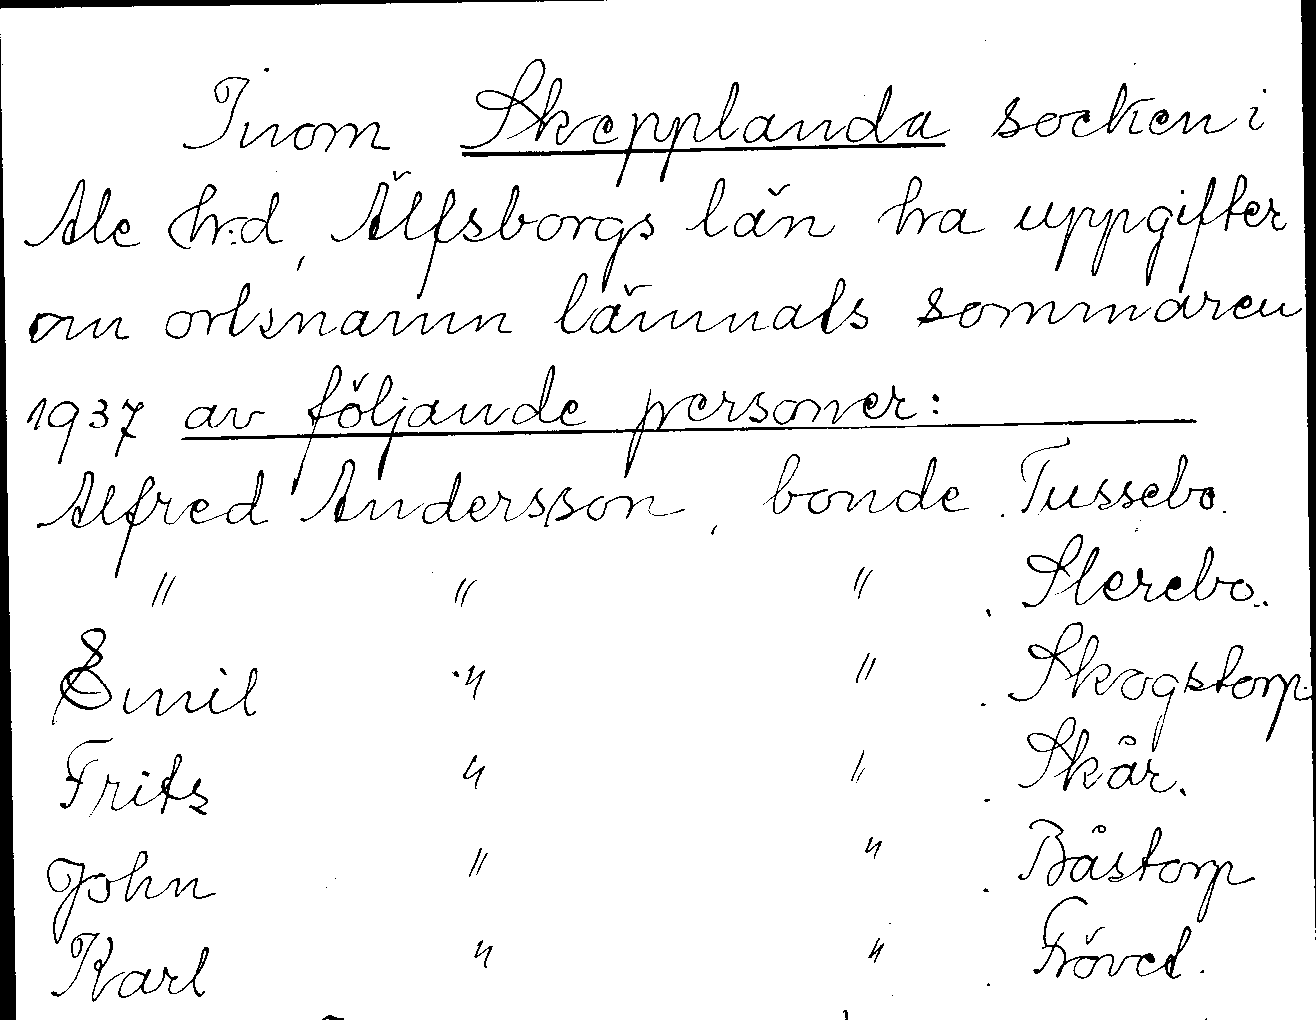 Inom Skepplanda socken i
Ale h:d, Älfsborgs län ha uppgifter
om ortsnamn lämnats sommaren
1937 av följande personer:
Alfred Andersson, bonde, Tussebo.
" " ", Slerebo.
Emil " ", Skogstorp.
Frits " ", Skår.
John " ", Båstorp
Karl " ", Fröved.